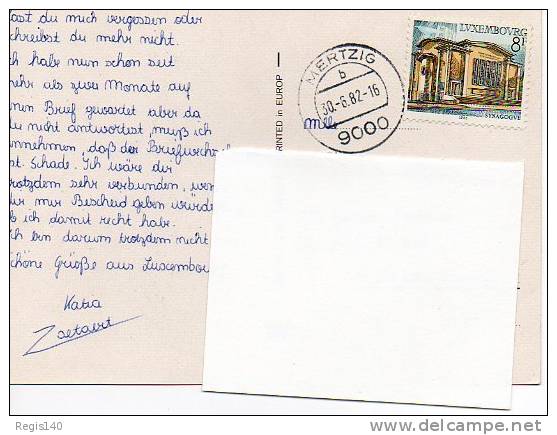 ast du mich vergessen oder
chreibst du mehr nicht.
h habe nun schon seit
ehr als zwei Monate auf
nen Brief gewartet aber da
u nicht antwortest, muß ich
nnehmen, daß der Briefwechs
st. Schade. Ich wäre dir
rotzdem sehr verbunden, wen
u mir Bescheid geben würde
b ich damit recht habe.
ch bin darum trotzdem nicht
chöne Grüße aus Luxembor
Katia
PRINTED in EUROP
MERTZIG
b
30-6.82-16
9000
LUXEMBOURG
8F
SYNAGOGUE
Mlle
Regis140
www.delcampe.net